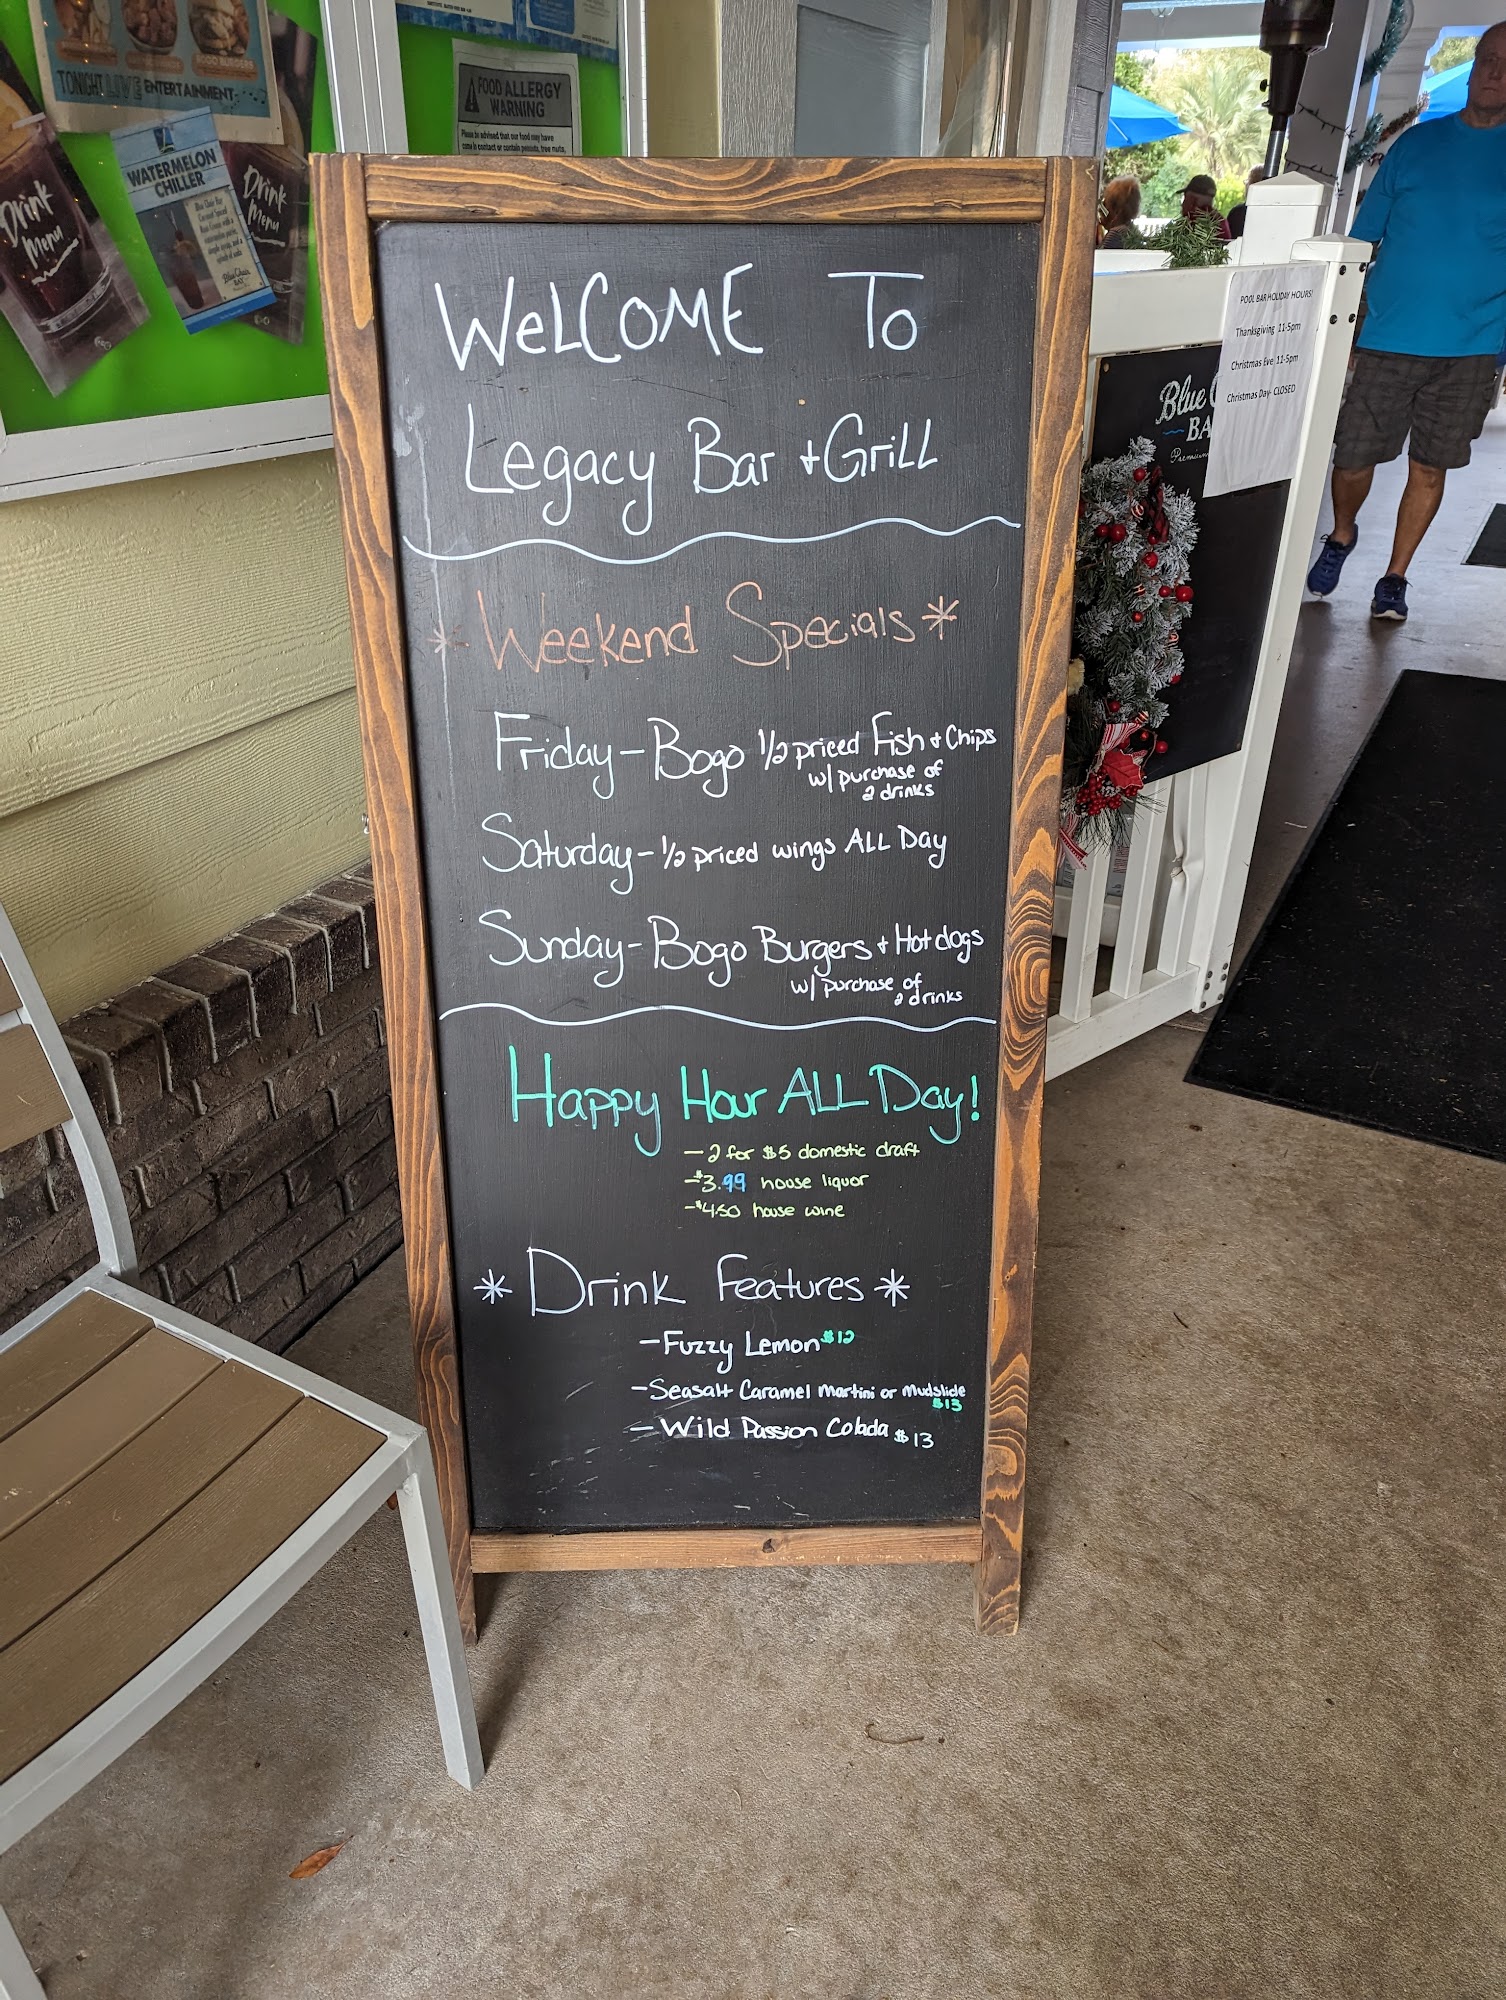 TONIGHT LIVE ENTERTAINMENT
FOOD BURGERS
Drink
Menu
WATERMELON
CHILLER
Drink
Menu
FOOD ALLERGY
WARNING
Please be advised that our food may have
come in contact or contain peanuts, tree nuts,
WELCOME To
Legacy Bar + Grill
* Weekend Specials *
Friday - Bogo 1/2 priced Fish + Chips
w/ purchase of
2 drinks
Saturday - 1/2 priced wings ALL Day
Sunday - Bogo Burgers + Hot dogs
w/ purchase of
2 drinks
Happy Hour ALL Day!
- 2 for $5 domestic draft
- $3.99 house liquor
- $4.50 house wine
* Drink Features *
- Fuzzy Lemon $12
- Seasalt Caramel Martini or Mudslide
$13
- Wild Passion Colada $13
POOL BAR HOLIDAY HOURS!
Thanksgiving 11-5pm
Christmas Eve 11-5pm
Christmas Day- CLOSED
Blue
BA
Premium